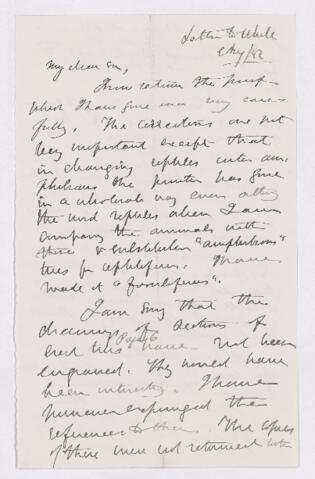 Letter to White
2 May/82
My dear Sir,
I now return the proof
which I have gone over very care-
fully. The corrections are not
very important except that
in changing reptiles into am-
phibians the printer has gone
in a wholesale way even altering
the word reptiles when I am
comparing the animals with
these & substituted "amphibians"
thus for reptiliferous. I have
made it
I am sorry that the
drawings of sections of
erect trees have not been
engraved. They would have
been interesting. I have
however expunged the
references to them. The copies
of these were not returned with